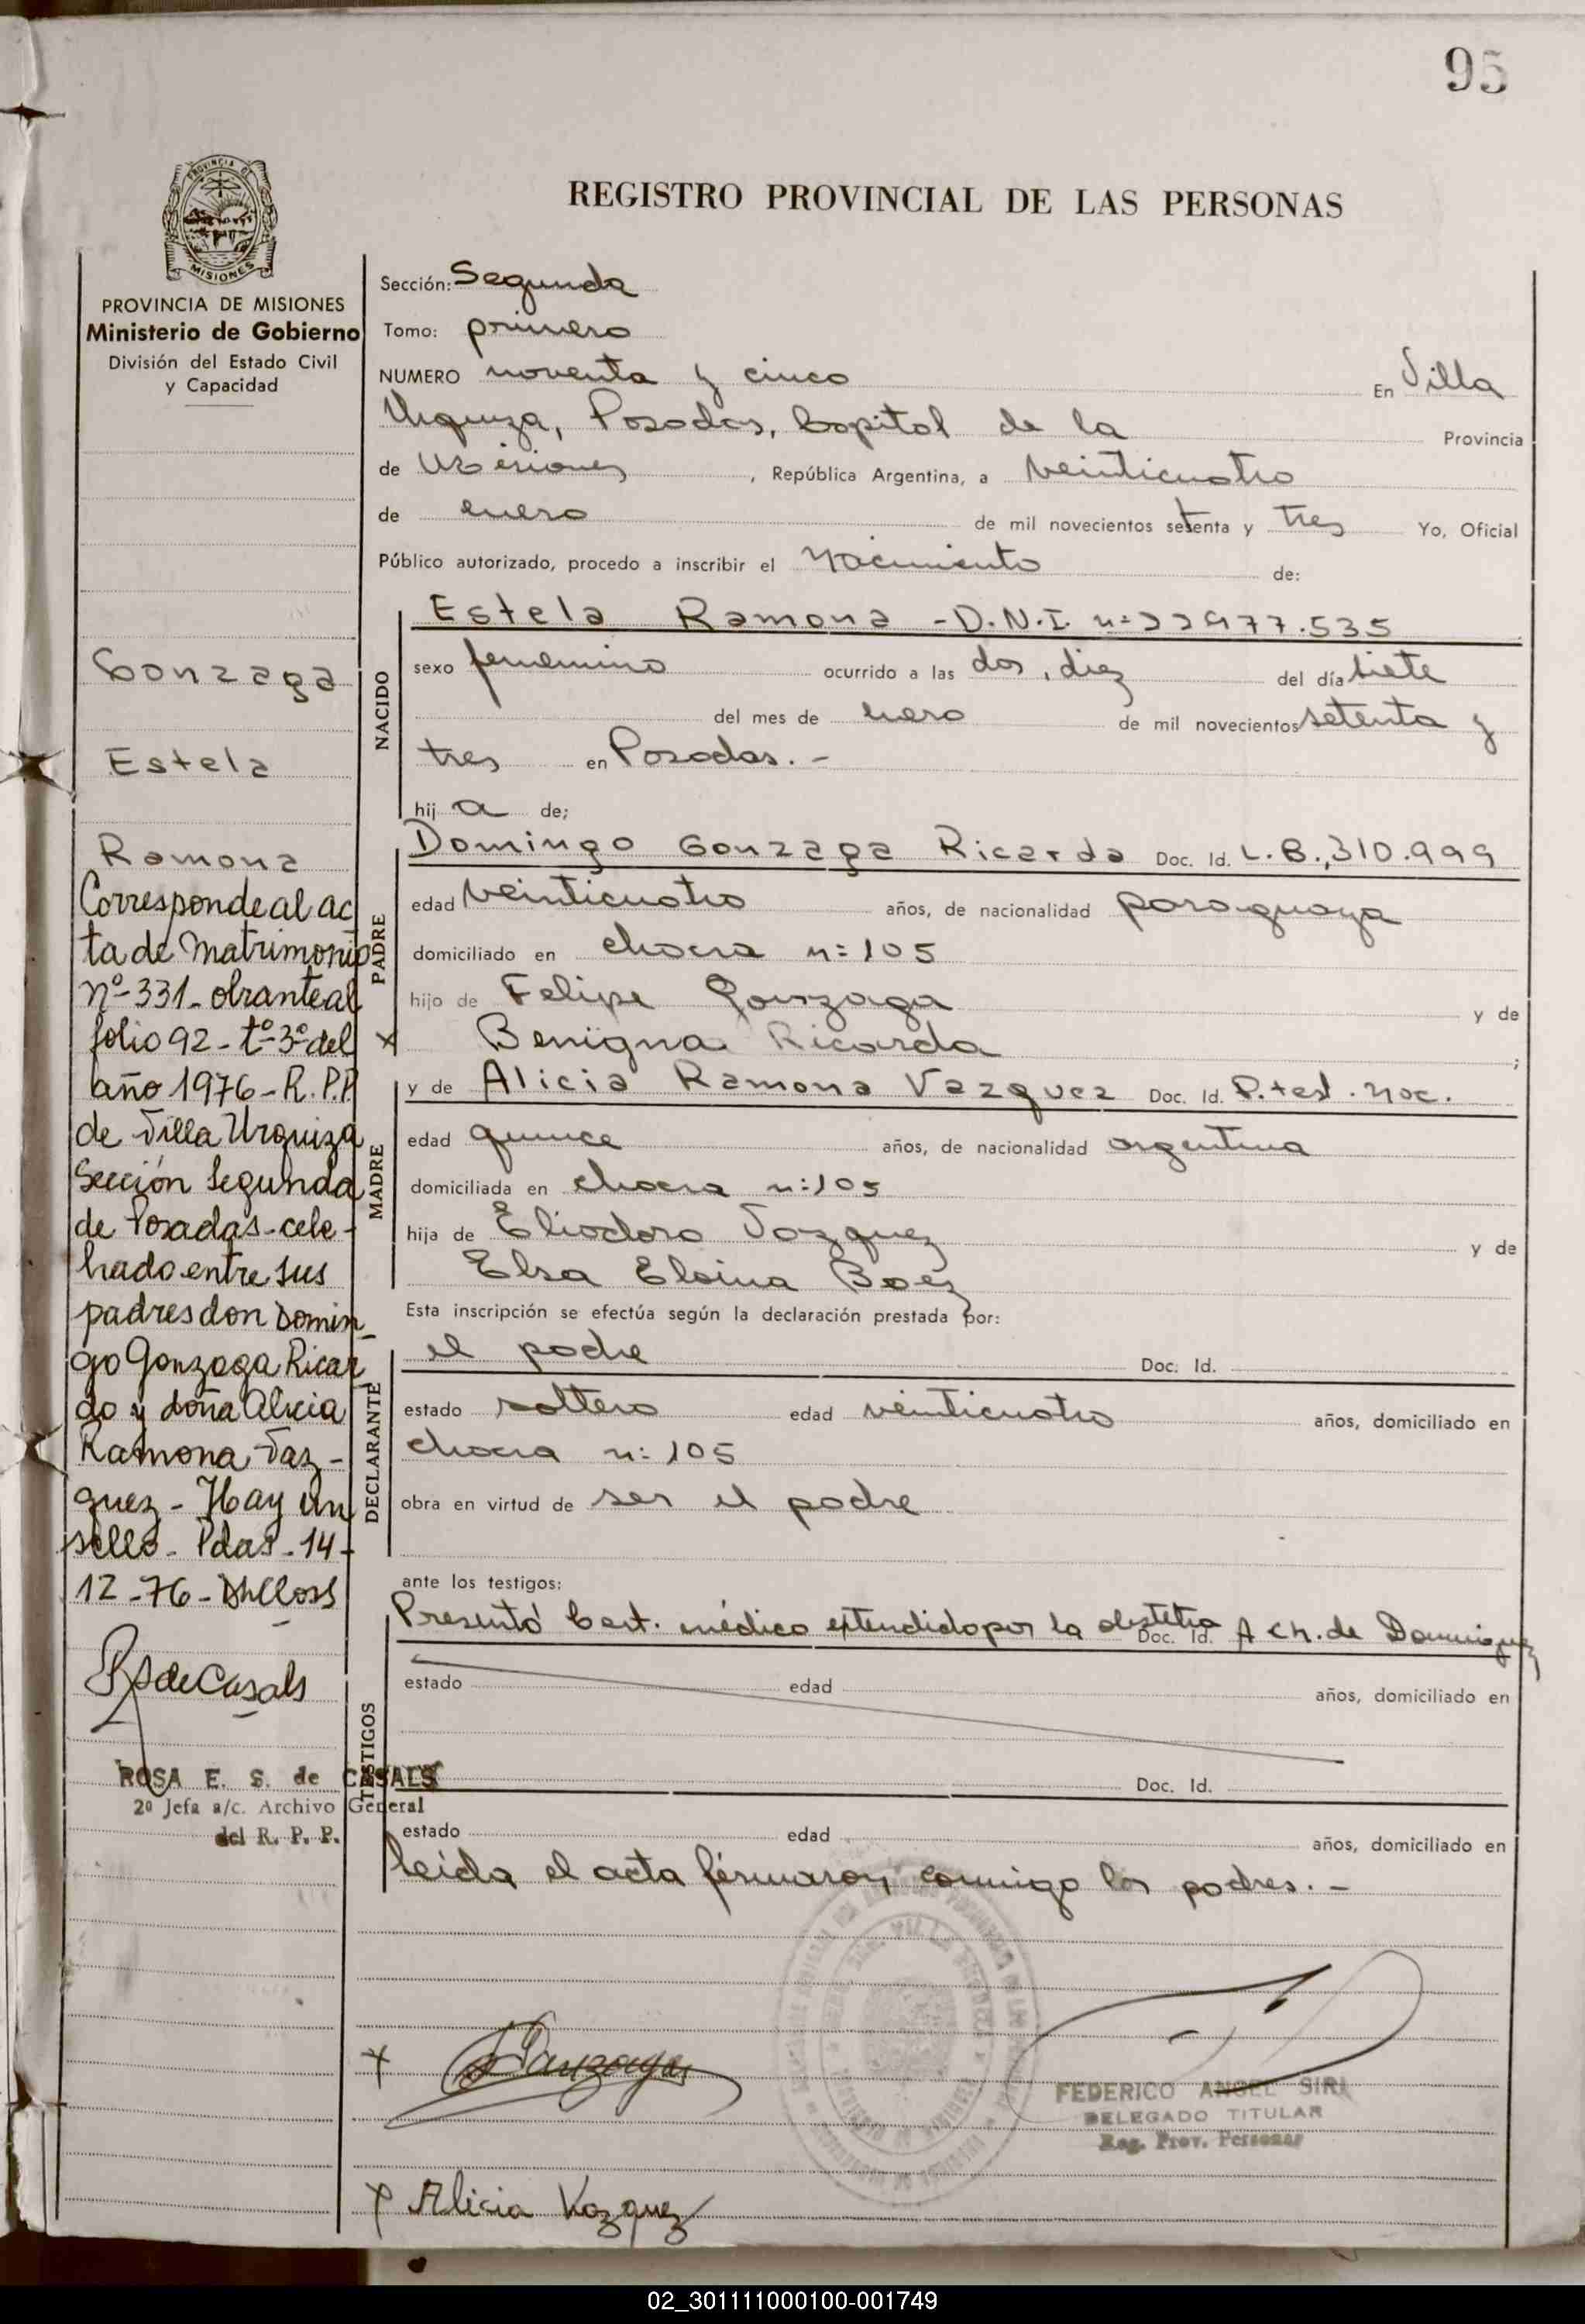 95
REGISTRO PROVINCIAL DE LAS PERSONAS
PROVINCIA DE
MISIONES
PROVINCIA DE MISIONES
Ministerio de Gobierno
División del Estado Civil
y Capacidad
Sección: Segunda
Tomo: primero
NUMERO noventa y cinco En Villa
Urquiza, Posadas, Capital de la Provincia
de Misiones, República Argentina, a veinticuatro
de enero de mil novecientos setenta y tres Yo, Oficial
Público autorizado, procedo a inscribir el Nacimiento de:
NACIDO
Estela Ramona - D.N.I. nº 22977.535
sexo femenino ocurrido a las dos, diez del día siete
del mes de enero de mil novecientos setenta y
tres en Posadas. -
hij a de;
PADRE
Domingo Gonzaga Ricardo Doc. Id. L.B.,310.999
edad veinticuatro años, de nacionalidad paraguaya
domiciliado en chacra n: 105
hijo de Felipe Gonzaga y de
x Benigna Ricarda ;
MADRE
y de Alicia Ramona Vazquez Doc. Id. P. test. nac.
edad quince años, de nacionalidad argentina
domiciliada en chacra n: 105
hija de Eliodoro Vazquez y de
Elsa Eloina Baez
Esta inscripción se efectúa según la declaración prestada por:
DECLARANTE
el padre Doc. Id.
estado soltero edad veinticuatro años, domiciliado en
chacra n: 105
obra en virtud de ser el padre
ante los testigos:
TESTIGOS
Presentó Cert. médico extendido por la obstetra A Ch. de Dominguez
Doc. Id.
estado edad años, domiciliado en
Doc. Id.
estado edad años, domiciliado en
leída el acta firmaron conmigo los padres. -
Gonzaga
Estela
Ramona
Corresponde al ac
ta de matrimonio
nº 331 - obrante al
folio 92 - tº 3º del
año 1976 - R.P.P
de Villa Urquiza
Sección Segunda
de Posadas - cele -
brado entre sus
padres don Domin
go Gonzaga Ricar
do y doña Alicia
Ramona Vaz -
quez - Hay un
sello - Pdas - 14 -
12 - 76 -
RSdeCasals
ROSA E. S. de CASALS
2º Jefa a/c. Archivo General
del R. P. P.
x Gonzaga
FEDERICO ANGEL SIRI
DELEGADO TITULAR
Reg. Prov. Personas
x Alicia Vazquez
02_301111000100-001749